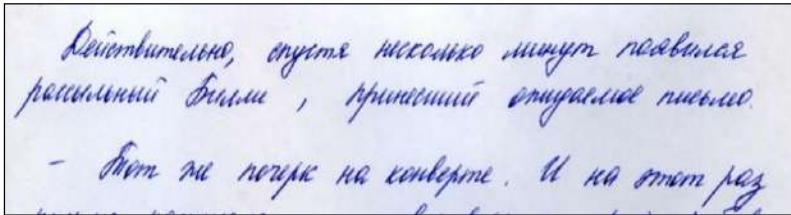 Действительно, спустя несколько минут появился
рассыльный Билли, принесший ожидаемое письмо.
- Тот же почерк на конверте. И на этот раз